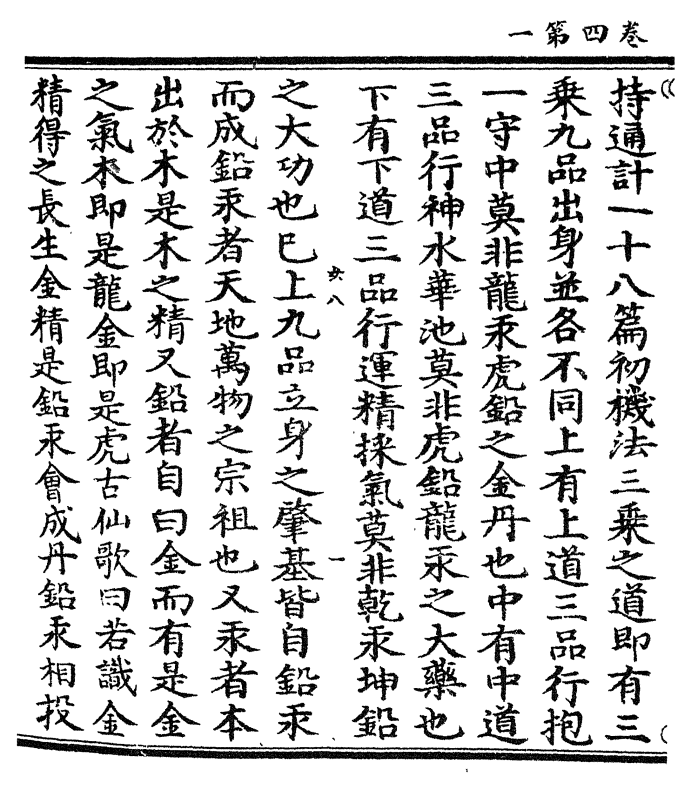 卷四第一
持通計一十八篇初機法三乘之道即有三
乘九品出身並各不同上有上道三品行抱
一守中莫非龍汞虎鉛之金丹也中有中道
三品行神水華池莫非虎鉛龍汞之大藥也
下有下道三品行運精採氣莫非乾汞坤鉛
八
一
之大功也巳上九品立身之肇基皆自鉛汞
而成鉛汞者天地萬物之宗祖也又汞者本
出於木是木之精又鉛者自曰金而有是金
之氣木即是龍金即是虎古仙歌曰若識金
精得之長生金精是鉛汞會成丹鉛汞相投